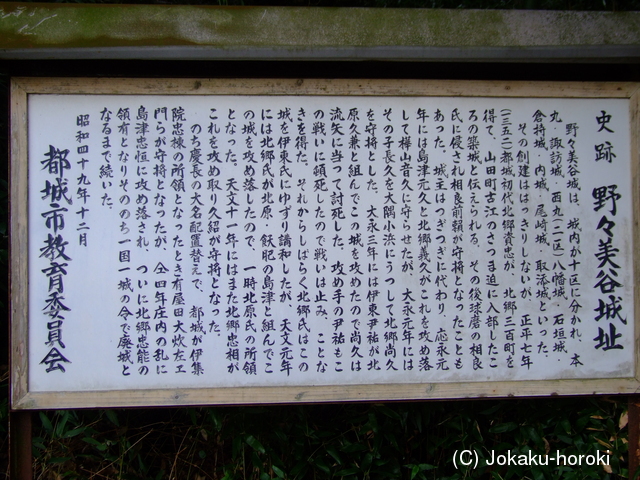 史跡 野々美谷城址
野々美谷城は、城内が十区に分かれ、本
丸・諏訪城・西丸(二区)八幡城・石垣城・
倉持城・内城・尾崎城・取添城といった。
その創建ははっきりしないが、正平七年
(一三五二)都城初代北郷資忠が、北郷三百町を
得て、山田町古江のさつま迫に入部したこ
ろの築城と伝えられる。その後球磨の相良
氏に侵され相良前頼が守将となったことも
あった。城主はつぎつぎに代わり、応永元
年には島津元久と北郷義久がこれを攻め落
して樺山音久に守らせたが、大永元年には
その子長久を大隅小浜にうつして北郷尚久
を守将とした。大永三年には伊東尹祐が北
原久兼と組んでこの城を攻めたので尚久は
流矢に当って討死した。攻め手の尹祐もこ
の戦いに頓死したので戦いは止み、ことな
きを得た。それからしばらく北郷氏はこの
城を伊東氏にゆずり講和したが、天文元年
には北郷氏が北原・飫肥の島津と組んでこ
の城を攻め落したので、一時北原氏の所領
となった。天文十一年にはまた北郷忠相が
これを攻め取り久紹が守将となった。
のち慶長の大名配置替えで、都城が伊集
院忠棟の所領となったとき有屋田大炊左エ
門らが守将となったが、仝四年庄内の乱に
島津忠恒に攻め落され、ついに北郷忠能の
領有となりそののち一国一城の令で廃城と
なるまで続いた。
昭和四十九年十二月
都城市教育委員会
(C) Jokaku-horoki